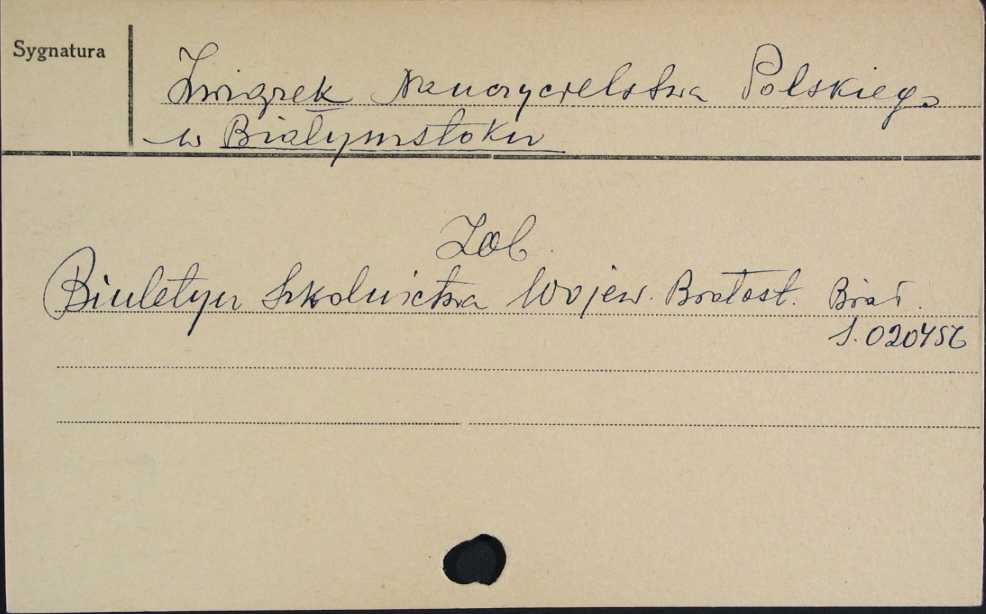 Sygnatura
Związek Nauczycielstwa Polskiego
w Białymstoku
Zob.
Biuletyn Szkolnictwa Wojew. Białost. Biał.
S. 020456